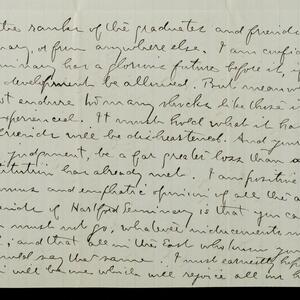 the ranks of the graduates and friends
nary, or from anywhere else. I am confid
minary has a glorious future before it, i
development be allowed. But meanwh
not endure too many shocks like those i
experienced. It must hold what it ha
friends will be disheartened. And your
judgment, be a far greater loss than a
stitution has already met. I am positive
mous and emphatic opinion of all the a
friends of Hartford Seminary is that you can
must not go, whatever inducements m
; and that all in the East who know you
would say the same. I most earnestly hope
will be one which will rejoice all in h